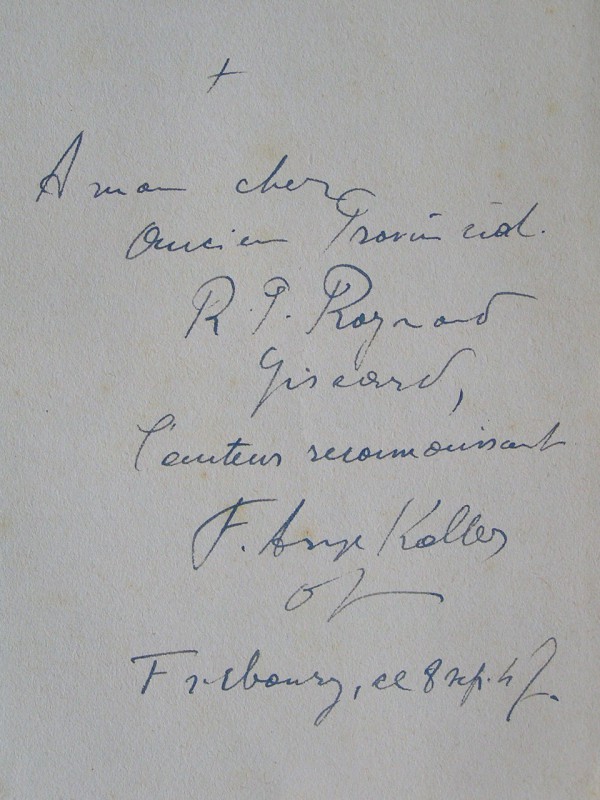 +
A mon cher
Ancien Provincial.
R. P. Raynard
Giscard,
l'auteur reconnaissant
F. Ange Koller
of
Fribourg, ce 8 sep. 47.